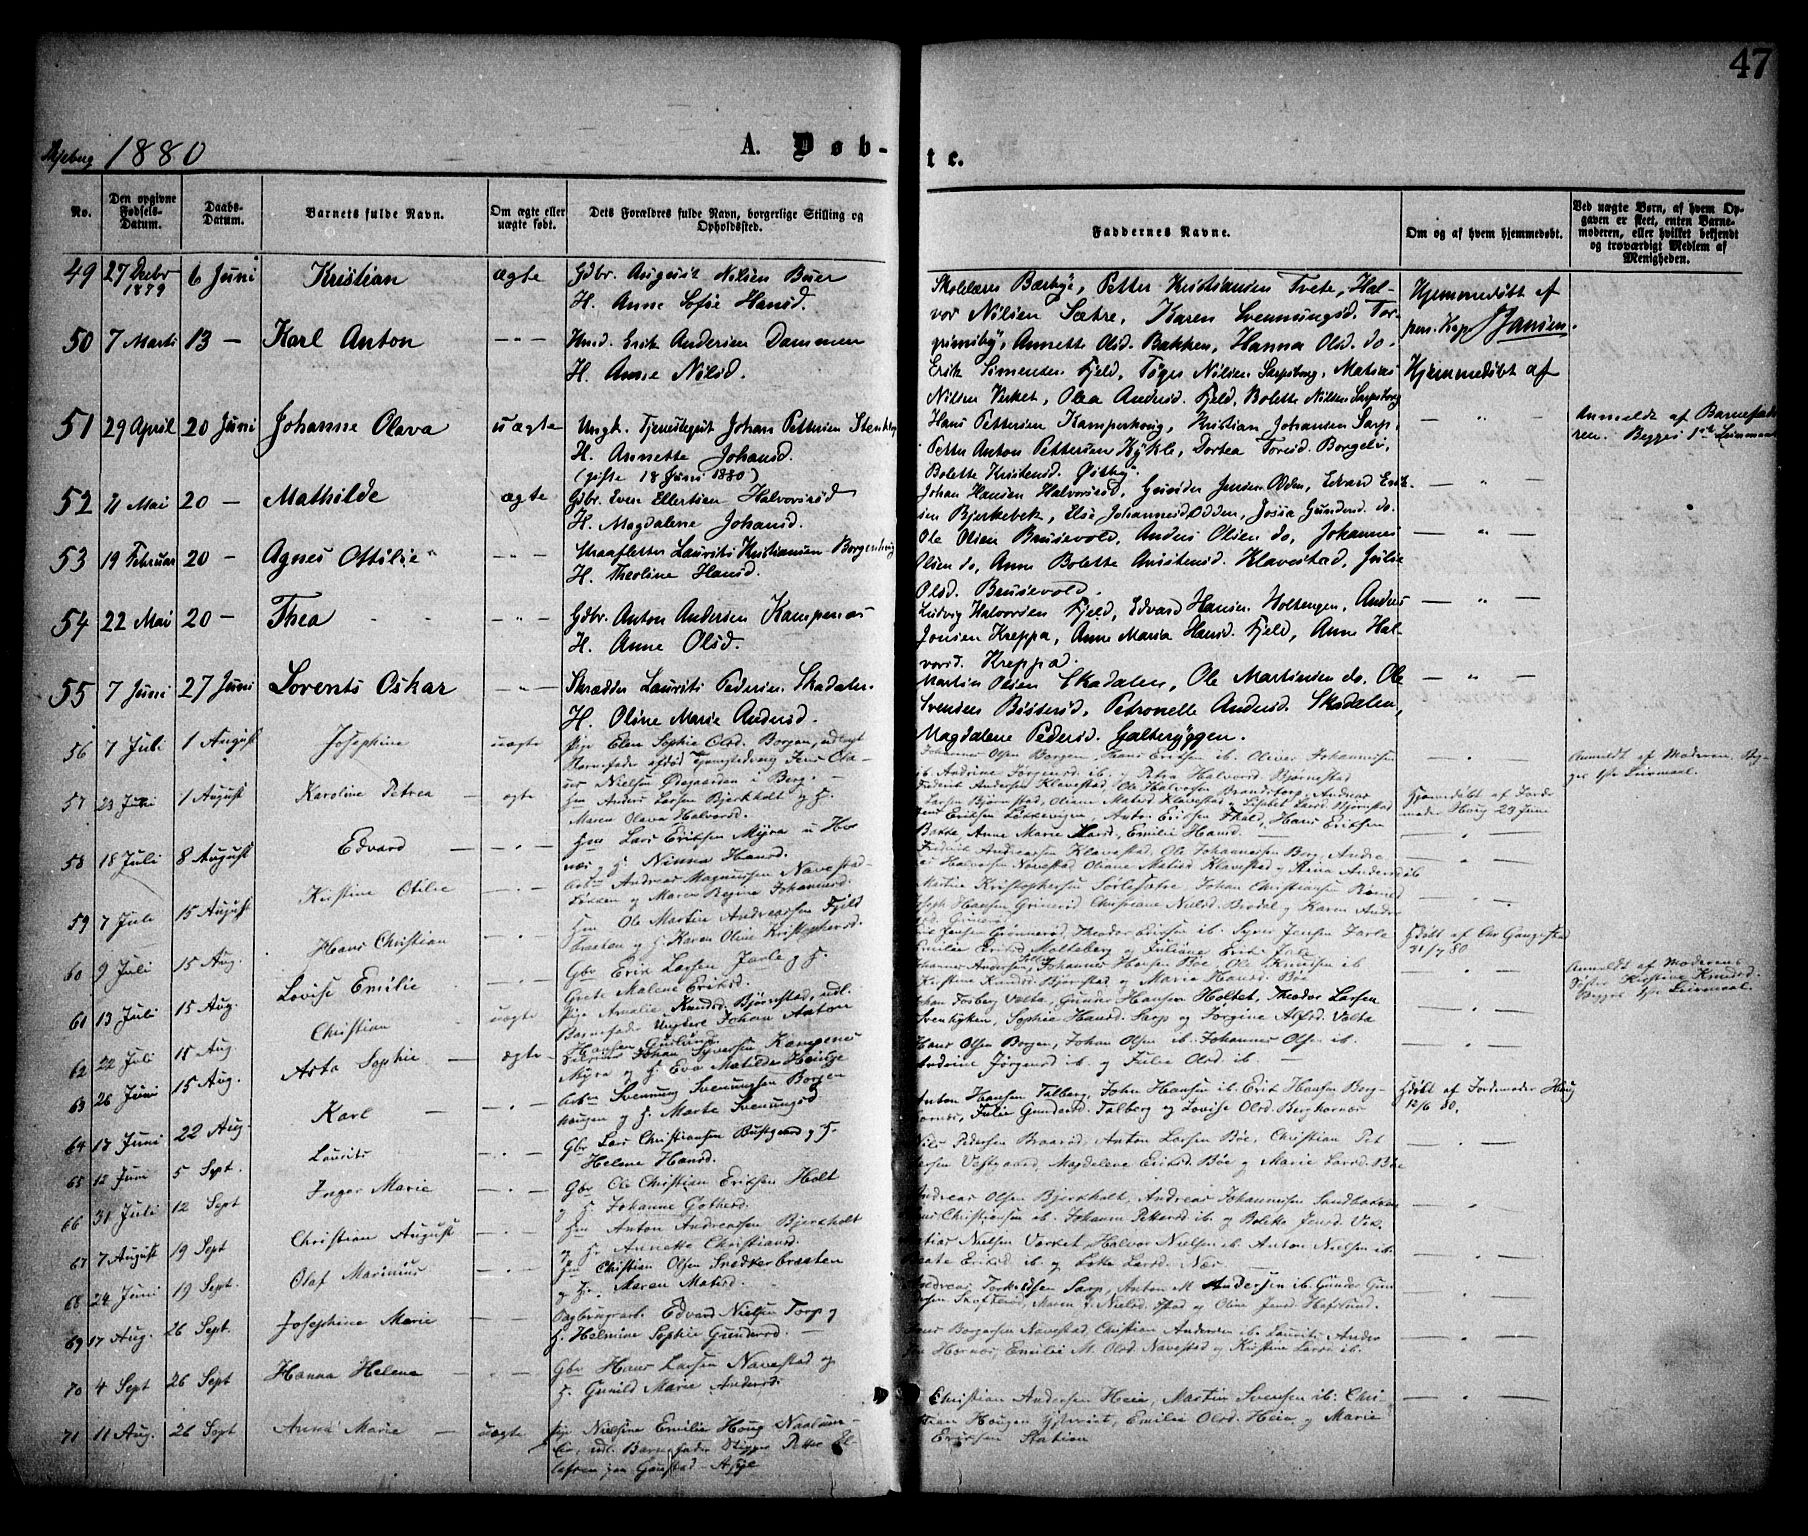 47
Skjeberg 1880
A. Døb-
te.
No.
Den opgivne Fødsels-Datum.
Daabs-Datum.
Barnets fulde Navn.
Om ægte eller uægte født.
Dets Forældres fulde Navn, borgerlige Stilling og Opholdssted.
Faddernes Navne.
Om og af hvem hjemmedøbt.
Ved uægte Børn, af hvem Opgaven er skeet, enten Barnemoderen, eller hvilket bekjendt og troværdigt Medlem af Menigheden.
49 27 Decbr 1879 6 Juni Kristian ægte Gdbr. August Nilsen Buer
H. Anne Sofie Hansd.
Skolelærer Bærbye, Petter Kristiansen Tvete, Hal-
vor Nilsen Sætre, Karen Svenningsd. Tor-
pimsby, Annette Olsd. Bakken, Hanna Olsd. do.
Hjemmedøbt af
pers. Kap. J Jansen.
50 7 Marti 13 — Karl Anton — " — Husd. Erik Andersen Dammen
H. Anne Nilsd.
Erik Simensen Fjeld, Tøger Nilsen Sarpsborg, Matias
Nilsen Verket, Olea Andersd. Fjeld, Bolette Nilsen Sarpsborg
Hjemmedøbt af
51 29 April 20 Juni Johanne Olava uægte Ungk. Tjenestegut Johan Pettersen Stenby
H. Annette Johansd.
(gifte 18 Juni 1880)
Hans Pettersen Kamperhoug, Kristian Johansen Sarp-
Petter Anton Pettersen Kykle, Dortea Toresd. Borgelv
Bolette Kristensd. Østby.
— " —
Anmeldt af Barnefade-
ren. Begges 1ste Leiermaal
52 11 Mai 20 — Mathilde ægte Gdbr. Even Ellertsen Halvorsrød
H. Magdalene Johansd.
Johan Hansen Halvorsrød, Jensen Odden, Edvard Erik-
sen Bjerkebek, Else Johannesd Odden, Josia Gundersd. do.
— " —
53 19 Februar 20 — Agnes Otilie — " — Straafletter Laurits Kristiansen Borgenhaug
H. Theoline Hansd.
Ole Olsen Brusevold, Anders Olsen do, Johannes
Olsen do, Anne Bolette Kristensd. Klavestad, Julie
Olsd. Brusevold.
— " —
54 22 Mai 20 — Thea — " — Gdbr. Anton Andersen Kampenæs
H. Anne Olsd.
Ludvig Halvorsen Fjeld, Edvard Hansen Holtengen, Anders
Jonsen Kreppa, Anne Maria Hansd. Fjeld, Anne Hal-
vorsd. Kreppa.
— " —
55 7 Juni 27 Juni Lorents Oskar — " — Skrædder Laurits Pedersen Skadalen
H. Oline Marie Andersd.
Martin Olsen Skadalen, Ole Martinsen do. Ole
Svendsen Bøsterød, Petronelle Andersd. Skadalen,
Magdalene Pedersd. Galterøggen.
— " —
56 7 Juli 1 August Josephine uægte Pige Elen Sophie Olsd. Borgen, udlagt
Barnefader afdød Tjenestedreng Jens Ola-
us Nielsen Ødegaarden i Berg.
Johannes Olsen Borgen, Hans Eriksen ib. Oliver Johannesen
ib. Andrine Jørgensd ib. Petra Halvorsd. Bjørnstad
— " —
Anmeldt af Moderen. Beg-
ges 1ste Leiermaal
57 23 Juni 1 August Karoline Petrea — ægte Hm Anders Larsen Bjerkholt og H.
Maren Olava Halvorsd.
Frederik Andersen Klavestad, Ole Halvorsen Brandstorp, Andreas
Larsen Bjørnstad, Oliane Matisd Klavestad og Lisabet Larsd. Bjørnstad
Hjemmedøbt af Jorde-
moder Haug 29 Juni
58 18 Juli 8 August Edvard — " — Hm Lars Eriksen Myra u Hor-
næs, og H. Ninna Hansd.
Jens Eriksen Løkkevigen, Anton Eriksen Skald, Hans Eriksen
Bakke, Anne Marie Larsd, Emilie Hansd.
— " —
59 7 Juli 15 August Kristine Otilie — " — Arb.m Andreas Magnussen Navestad-
Løkken og Maren Regine Johannesd.
Frederik Andreassen Klavestad, Ole Johannesen Berg, Andre-
as Halvorsen Navestad Oliane Matisd Klavestad og Anna Andersd ib
— " —
60 9 Juli 15 Aug. Hans Christian — " — Hm Ole Martin Andreassen Fjeld-
braaten og H. Karen Oline Kristophersd.
Martin Kristophersen Sørlesætre, Johan Christiansen Bøerud
Joseph Hansen Grimerød, Christiane Nielsd. Brodal og Karen Anders-
d. Grimerød
— " —
61 13 Juli 15 Aug. Lovise Emilie — " — Gbr Erik Larsen Jarle og H.
Grete Malene Eriksd.
Erik Jensen Grønnerød, Theodor Eriksen ib. Syver Jensen Jarle
Emilie Eriksd Malteberg og Juliane Eriksd Jarle
Hdøbt af Ole Gangestad
21/7 80
62 22 Juli 15 Aug. Christian uægte Pige Amalie Knudsd. Bjørnstad, udl.
Barnefader Ungkarl Johan Anton
Hansen Guslund
Johannes Andersen, Johannes Hansen Bøe, Ole Knudsen ib
Kristine Knudsd. Bjørnstad og Marie Hansd. Bøe
— " —
Anmeldt af Moderens
Søster Kirstine Knudsd.
Begges 1ste Leiermaal.
63 26 Juni 15 Aug. Asta Sophie — ægte Johan Syversen Kampenes
Myra og H. Eva Matilde Helge
Johan Torberg Valta, Gunder Hansen Holtet, Theodor Larsen
Svenkyken, Sophie Hansd. Sarp og Jorgine Alfsd. Valta
— " —
64 17 Juni 22 Aug. Karl — " — Arb.m Svenning Svenningsen Borgen
haugen og H. Marte Svenningsd
Hans Olsen Borgen, Johan Olsen ib. Johannes Olsen ib.
Andrine Jørgensd ib. og Julie Olsd. ib.
— " —
65 12 Juni 5 Sept. Laurits — " — Gbr Lars Christiansen Bustgaard og H.
Helene Hansd.
Anton Hansen Talberg, John Hansen ib. Erik Hansen Berg-
hornæs, Julie Gundersd. Talberg og Lovise Olsd. Berghornæs
Hdøbt af Jordemoder Haug
12/6 80.
66 31 Juli 12 Sept Inger Marie — " — Gbr Ole Christian Eriksen Holt
og H. Johanne Gothersd.
Nils Pedersen Baardsd, Anton Larsen Bøe, Christian Pet-
tersen Vestgaard, Magdelene Eriksd. Bøe og Marie Larsd. Bøe
— " —
67 7 August 19 Sept Christian August — " — Hm Anton Andreassen Bjerkholt
og H. Annette Christiansd.
Andreas Olsen Bjerkholt, Andreas Johannesen Sandbakken
Christiansen ib. Johanne Pettersd ib. og Bolette Jensd. Vik.
— " —
68 24 Juni 19 Sept. Olaf Marinius — " — Hm Christian Olsen Snekkerbraaten
og H. Maren Matisd.
Matias Nielsen Værket, Halvor Nielsen ib. Anton Nielsen ib.
Eriksd ib og Larsd. Næs
— " —
69 17 Aug. 26 Sept. Josephine Marie — " — Dagbrugarb. Edvard Nielsen Torp og
H. Helmine Sophie Gundersd. —
Andreas Torkildsen Sarp, Anton M Andersen ib. Gunder Gun-
dersen Skofterud, Maren J. Nielsd. Ystad og Oline Jensd Hafslund.
— " —
70 4 Sept 26 Sept Hanna Helene — " — Gbr Hans Larsen Navestad og
H. Gunild Marie Andersd.
Hans Borgersen Navestad, Christian Andersen ib. Laurits Anders-
Hornæs, Emilie M. Olsd. Navestad og Kirstine Larsd ib.
— " —
71 11 Aug. 26 Sept Anna Marie — uægte Pige Nielsine Emilie Haug Naalum-
udl. Barnefader Skipper Petter El-
lefsen paa Gaustad - Asge
Christian Andersen Heie, Martin Svensen ib. Chri-
stian Haugen Ystevret, Emilie Olsd. Heie og Marie
Eriksen Station
— " —